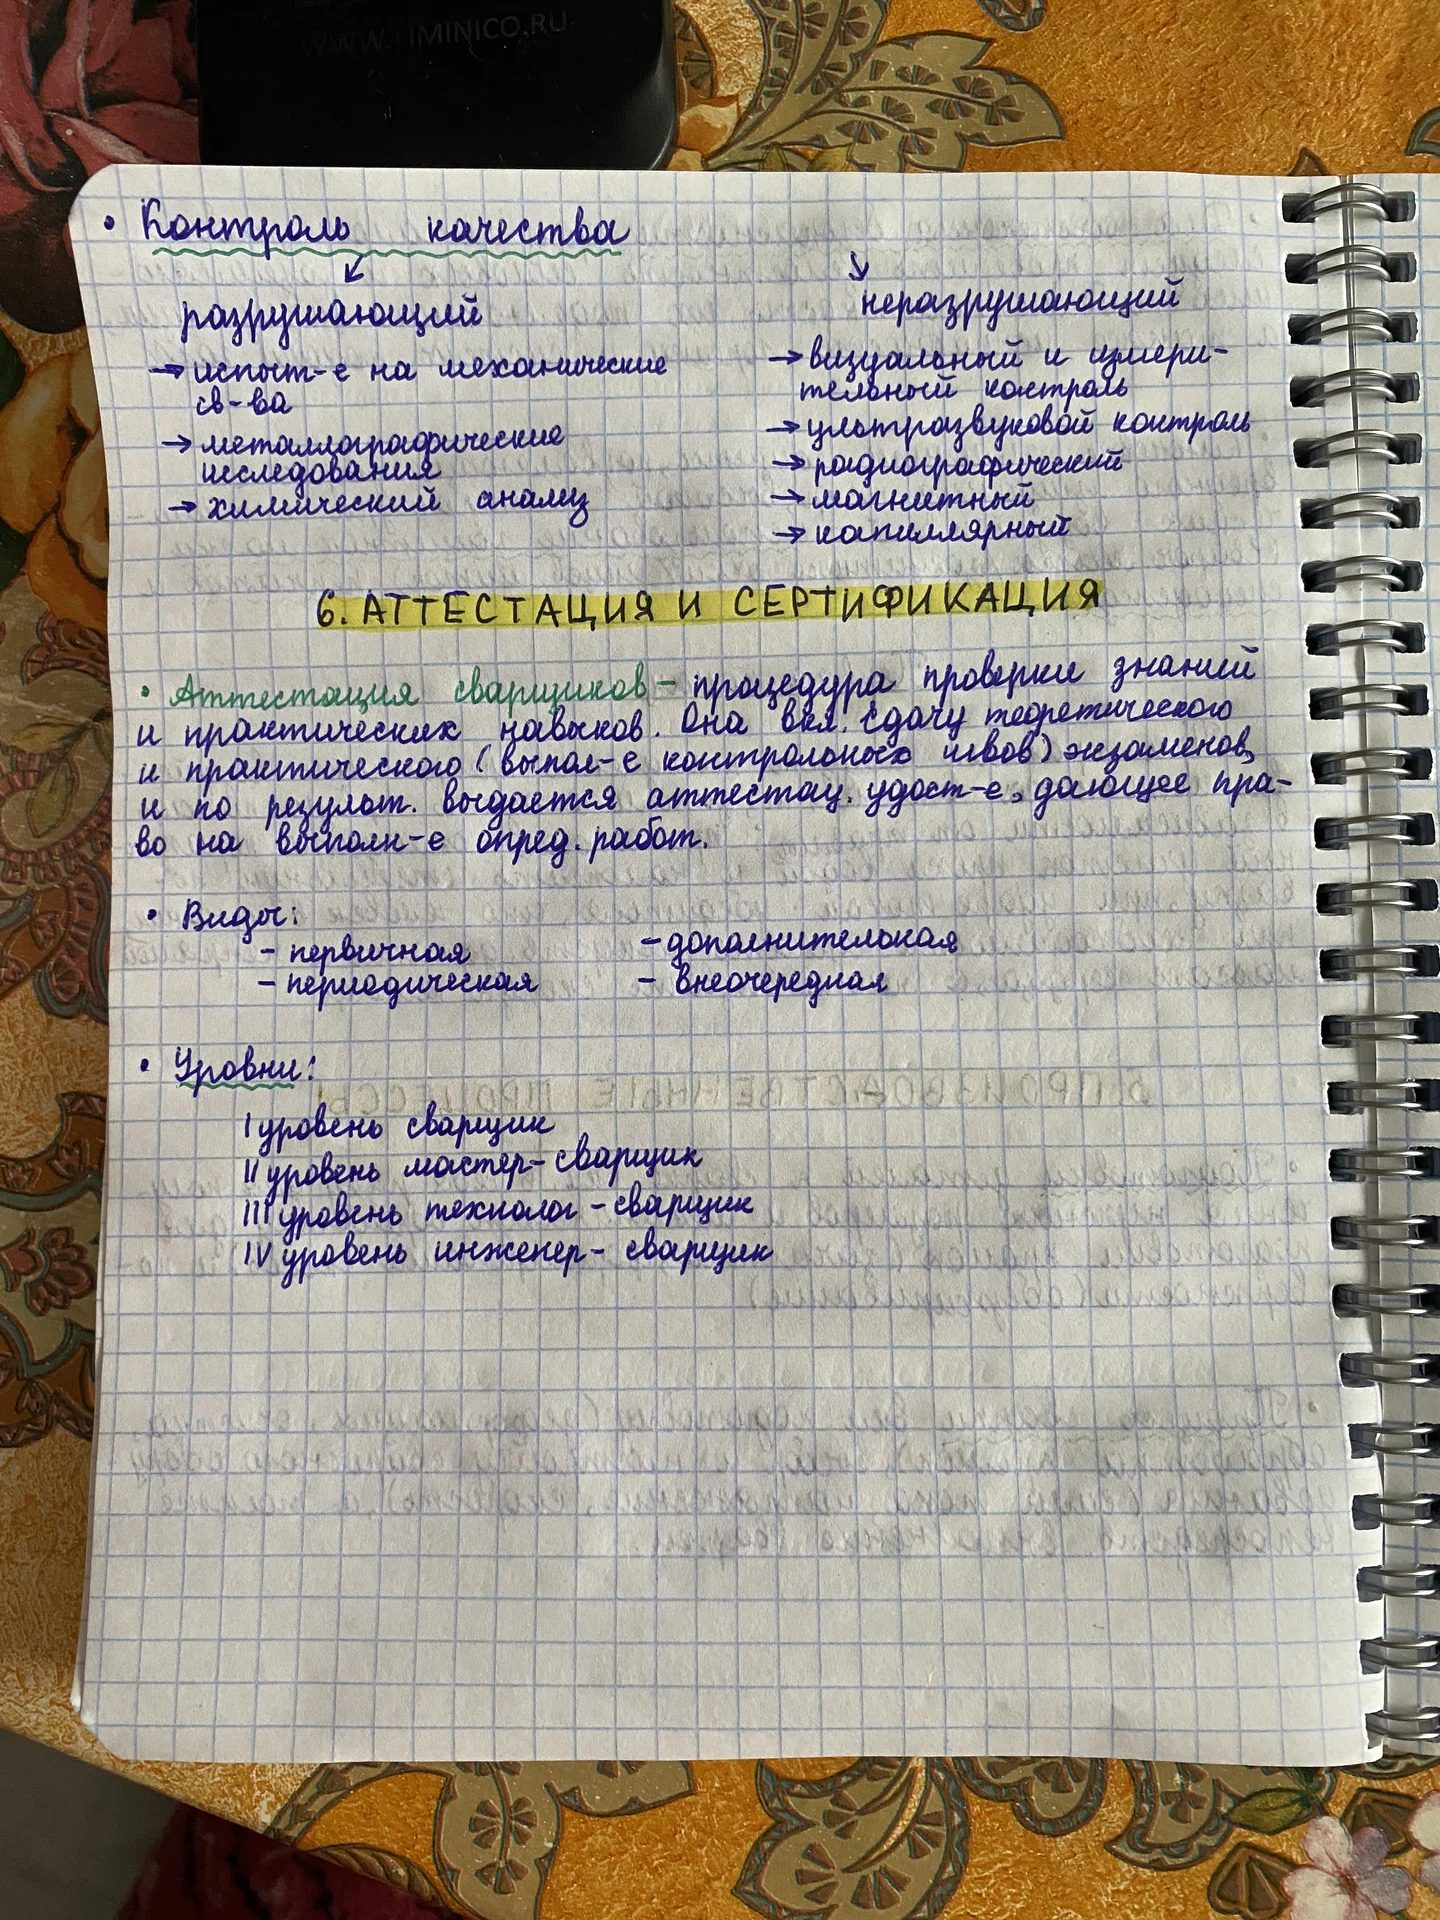 WWW.TIMINICO.RU
• Контроль качества
↙ ↘
разрушающий
→ испыт-е на механические
св-ва
→ металлографические
исследования
→ химический анализ
неразрушающий
→ визуальный и измери-
тельный контроль
→ ультразвуковой контроль
→ радиографический
→ магнитный
→ капиллярный
6. АТТЕСТАЦИЯ И СЕРТИФИКАЦИЯ
• Аттестация сварщиков – процедура проверки знаний
и практических навыков. Она вкл. сдачу теоретического
и практического (выпол-е контрольных швов) экзаменов,
и по результ. выдается аттестац. удост-е, дающее пра-
во на выполн-е опред. работ.
• Виды:
- первичная
- периодическая
- дополнительная
- внеочередная
• Уровни:
I уровень сварщик
II уровень мастер-сварщик
III уровень технолог-сварщик
IV уровень инженер-сварщик